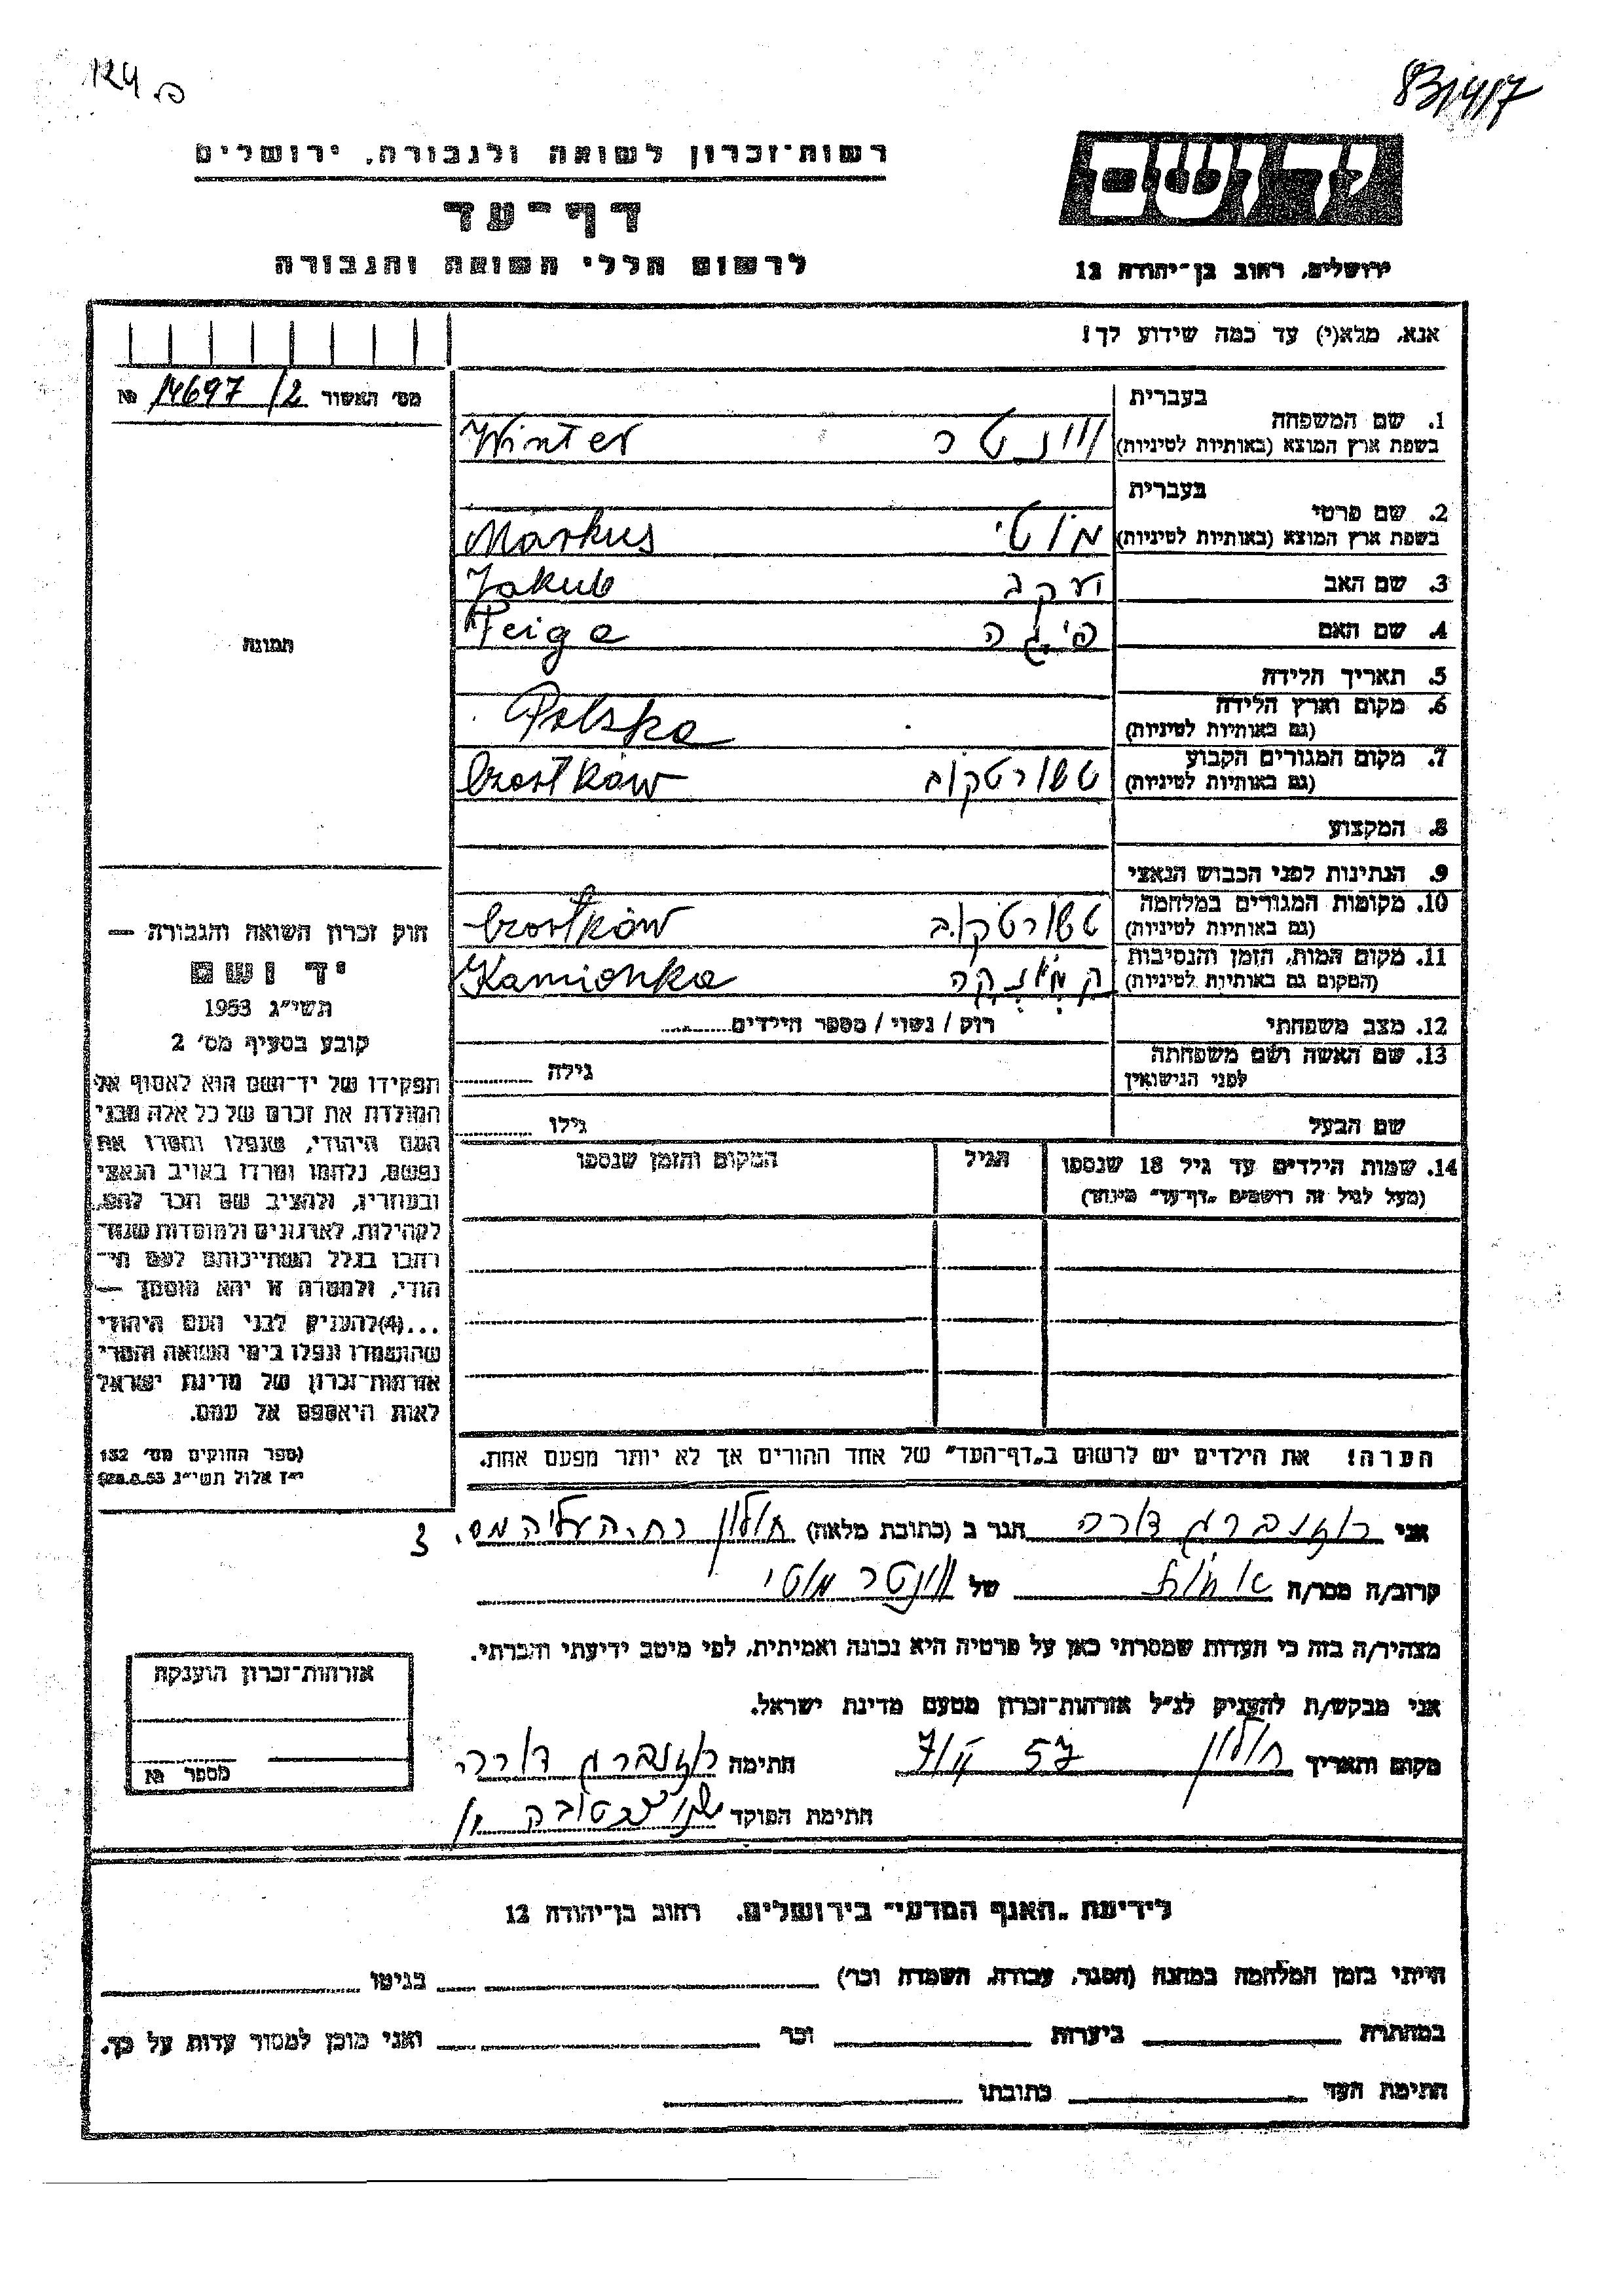 124 פ.
83/4/7
רשות-זכרון לשואה ולגבורה, ירושלים
יד ושם
דף-עד
לרשום חללי השואה והגבורה
ירושלים, רחוב בן-יהודה 12
אנא, מלא(י) עד כמה שידוע לך!
מס׳ האשור 14697/2 №
בעברית
1. שם המשפחה
בשפת ארץ המוצא (באותיות לטיניות) וינטר Winter
בעברית
2. שם פרטי
בשפת ארץ המוצא (באותיות לטיניות) מוטי Markus
3. שם האב יעקב Jakub
4. שם האם פיגה Feiga
תמונה
5. תאריך הלידה
6. מקום וארץ הלידה
(גם באותיות לטיניות) Polska
7. מקום המגורים הקבוע
(גם באותיות לטיניות) טשורטקוב Czortków
8. המקצוע
9. הנתינות לפני הכבוש הנאצי
10. מקומות המגורים במלחמה
(גם באותיות לטיניות) טשורטקוב Czortków
11. מקום המות, הזמן והנסיבות
(המקום גם באותיות לטיניות) Kamionka
12. מצב משפחתי רוק / נשוי / מספר הילדים
13. שם האשה ושם משפחתה
לפני הנישואין גילה
שם הבעל גילו
14. שמות הילדים עד גיל 18 שנספו הגיל המקום והזמן שנספו
(מעל לגיל זה רושמים „דף-עד״ מיוחד)
חוק זכרון השואה והגבורה —
יד ושם
תשי״ג 1953
קובע בסעיף מס׳ 2
תפקידו של יד-ושם הוא לאסוף אל
המולדת את זכרם של כל אלה מבני
העם היהודי, שנפלו ומסרו את
נפשם, נלחמו ומרדו באויב הנאצי
ובעוזריו, ולהציב שם וזכר להם,
לקהילות, לארגונים ולמוסדות שנח-
רבו בגלל השתייכותם לעם הי-
הודי, ולמטרה זו יהא מוסמך —
...(4) להעניק לבני העם היהודי
שהושמדו ונפלו בימי השואה והמרי
אזרחות-זכרון של מדינת ישראל
לאות היאספם אל עמם.
(ספר החוקים מס׳ 132
י״ז אלול תשי״ג 28.8.53)
הערה! את הילדים יש לרשום ב„דף-העד״ של אחד ההורים אך לא יותר מפעם אחת.
אני רוזנברג דורה הגר ב (כתובת מלאה) חולון רח. העליה מס. 3
קרוב/ה מכר/ה אחות של וינטר מוטי
מצהיר/ה בזה כי העדות שמסרתי כאן על פרטיה היא נכונה ואמיתית, לפי מיטב ידיעתי והכרתי.
אני מבקש/ת להעניק לנ״ל אזרחות-זכרון מטעם מדינת ישראל.
מקום ותאריך חולון 57 חתימה רוזנברג דורה
חתימת הפוקד
אזרחות-זכרון הוענקה
מספר №
לידיעת „האגף המדעי״ בירושלים. רחוב בן-יהודה 12
הייתי בזמן המלחמה במחנה (הסגר, עבודה, השמדה וכו׳) בגיטו
במחתרת ביערות וכו׳ ואני מוכן למסור עדות על כך.
חתימת העד כתובתו